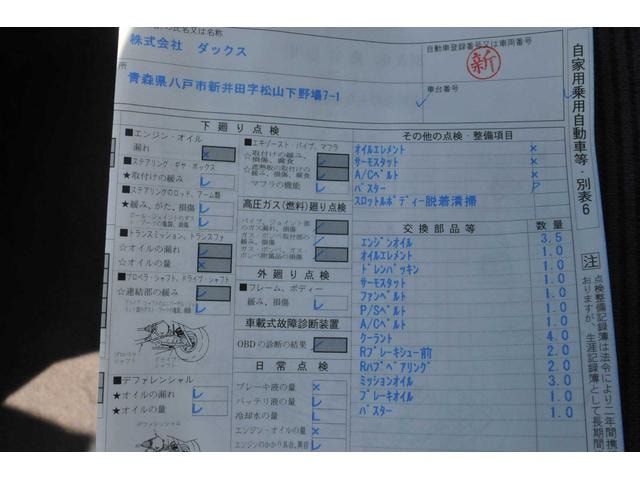 の氏名又は名称
株式会社 ダックス
所
青森県八戸市新井田字松山下野場7-1
自動車登録番号又は車両番号
新
車台番号
自家用乗用自動車等・別表6
下廻り点検
■エンジン・オイル
漏れ ×
■ステアリング・ギヤ・ボックス
★取付けの緩み レ
■ステアリングのロッド、アーム類
★緩み、がた、損傷 レ
ボール・ジョイントのダスト・ブーツの亀裂、損傷
■トランスミッション、トランスファ
☆オイルの漏れ レ
☆オイルの量 ×
■プロペラ・シャフト、ドライブ・シャフト
☆連結部の緩み レ
プロペラシャフト
ドライブシャフト
■デファレンシャル
★オイルの漏れ レ
★オイルの量 レ
デファレンシャル
■エキゾースト・パイプ、マフラ
☆取付けの緩み、損傷、腐食
☆遮熱板の取付けの緩み、損傷、腐食
マフラの機能 レ
高圧ガス(燃料)廻り点検
パイプ、ジョイント部のガス漏れ、損傷
ガス・ボンベ取付部の緩み、損傷
ガス・ボンベ、ガス・ボンベ附属品の損傷
外廻り点検
■フレーム、ボディー
緩み、損傷 レ
車載式故障診断装置
OBDの診断の結果
日常点検
ブレーキ液の量 ×
バッテリ液の量 レ
冷却水の量 レ
エンジン・オイルの量 ×
エンジンのかかり具合、異音 レ
その他の点検・整備項目
オイルエレメント ×
サーモスタット ×
A/Cベルト ×
バスター P
スロットルボディー脱着清掃
交換部品等 数量
エンジンオイル 3.5
オイルエレメント 1.0
ドレンパッキン 1.0
サーモスタット 1.0
ファンベルト 1.0
P/Sベルト 1.0
A/Cベルト 1.0
クーラント 4.0
Rブレーキシュー前 2.0
Rハブベアリング 2.0
ミッションオイル 3.0
ブレーキオイル 1.0
バスター 1.0
注
点検整備記録簿は法令により二年間携
おりますが、生涯記録簿として長期間